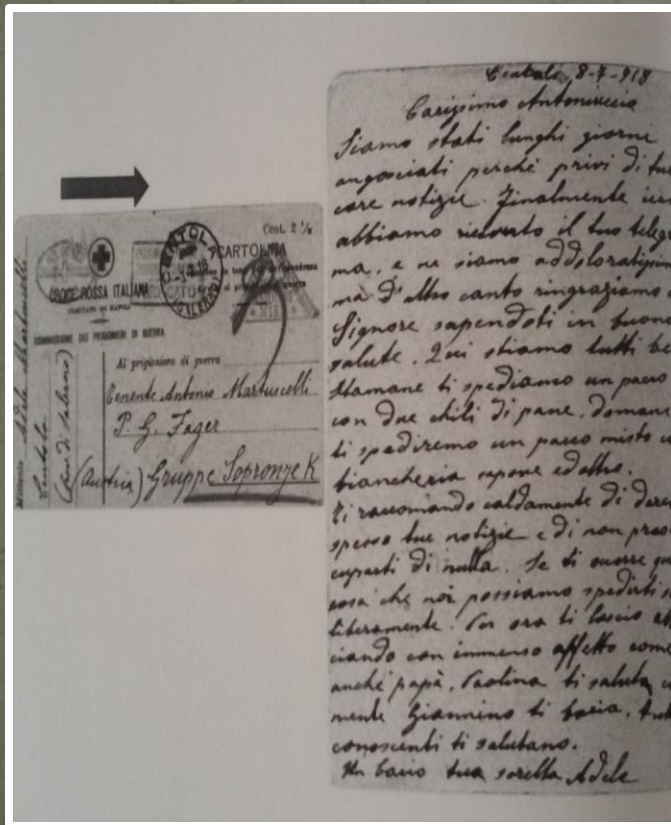 Cent. 2 ½
CARTOLINA
CENTOLA
(SALERNO)
CROCE ROSSA ITALIANA
COMITATO DI NAPOLI
COMMISSIONE DEI PRIGIONIERI DI GUERRA
Al prigioniero di guerra
Tenente Antonio Martuscelli
P. G. Lager
(Austria) Gruppe Sopronyek
Mittente Adele Martuscelli
Centola
(Prov. di Salerno)
8-7-918
Carissimo Antoniuccio
Siamo stati lunghi giorni
angosciati perché privi di tue
care notizie. Finalmente ieri
abbiamo ricevuto il tuo telegra
ma, e ne siamo addoloratissimi
ma d'altro canto ringraziamo
Signore sapendoti in buona
salute. Qui stiamo tutti be
Stamane ti spediamo un pacco
con due chili di pane, domane
ti spediremo un pacco misto
biancheria sapone ed altro.
Ti raccomando caldamente di darci
spesso tue notizie e di non preoc
cuparti di nulla. Se ti occorre qu
cosa che noi possiamo spedirti
liberamente. Per ora ti lascio abb
ciando con immenso affetto come
anche papà. Paolina ti saluta
mente Giannino ti bacia, tutti
conoscenti ti salutano.
Un bacio tua sorella Adele